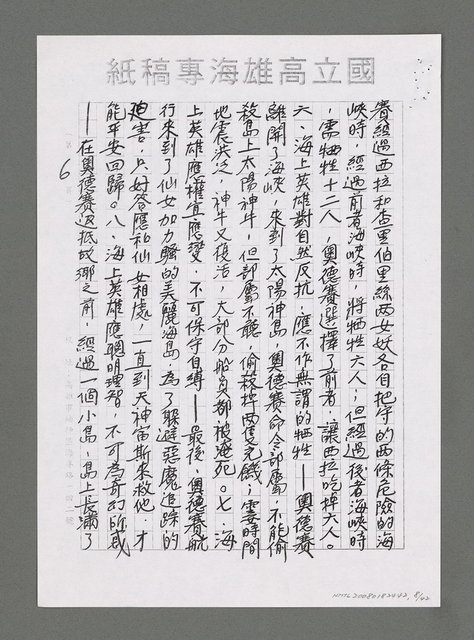 國立高雄海專稿紙
賽經過西拉和查里伯里絲兩女妖各自把守的兩條危險的海
峽時，經過前者海峽時，將犧牲六人；但經過後者海峽時
，需犧牲十二人，奧德賽選擇了前者，讓西拉吃掉六人。
六、海上英雄對自然反抗，應不作無謂的犧牲——奧德賽
離開了海峽，來到了太陽神島，奧德賽命令部屬，不能偷
殺島上太陽神牛，但部屬不聽，偷殺掉兩隻充饑；霎時間
地震洪泛，神牛又復活，大部分船員都被淹死。七、海
上英雄應權宜應變，不可保守自縛——最後，奧德賽航
行來到了仙女加力騷的美麗海島，為了躲避惡魔追踪的
迫害，只好答應和仙女相處，一直到天神宙斯來救他，才
能平安回歸。八、海上英雄應聰明理智，不可為奇幻所惑
——在奧德賽返抵故鄉之前，經過一個小島，島上長滿了
6
NMTL20080182442, 8/42